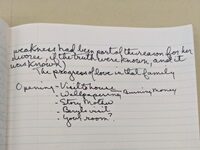 weakness had been part of the reason for her
divorce, if the truth were known, and it
was known)
The progress of love in that family
Opening - Visit to house
- Wallpapering
- Story
- Beryl's visit
- your room?